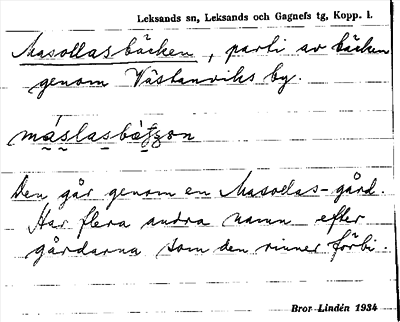 Leksands sn, Leksands och Gagnefs tg, Kopp. l.
Masollasbäcken, parti av bäcken
genom Västanviks by.
Den går genom en Masollas-gård.
Har flera andra namn efter
gårdarna som den rinner förbi.
Bror Lindén 1934